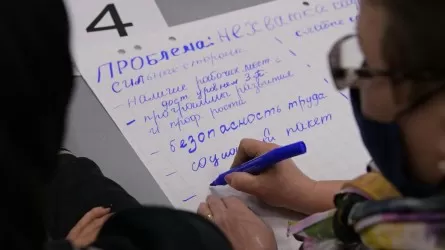 4
ПРОБЛЕМА: НЕХВАТКА
сильные стороны
- наличие рабочих мест
дост. уровень З.П.
- программы развития
и проф. роста
- безопасность труда
- социальный пакет
-